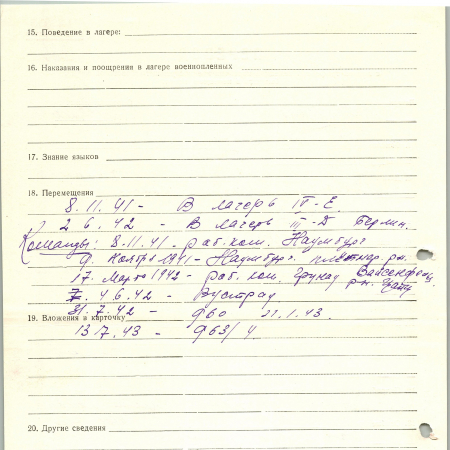 15. Поведение в лагере:
16. Наказания и поощрения в лагере военнопленных
17. Знание языков
18. Перемещения
8.11.41 - В лагерь IV-E.
2.6.42 - В лагерь III-D Берлин.
Команды: 8.11.41 - раб. ком. Наумбург
9. Ноября 1941 - Наумбург.
17. Марта 1942 - раб. ком.
4.6.42 - Вустрау
31.7.42 - 960 22.1.43.
19. Вложения в карточку
13.7.43 - 963/4.
20. Другие сведения